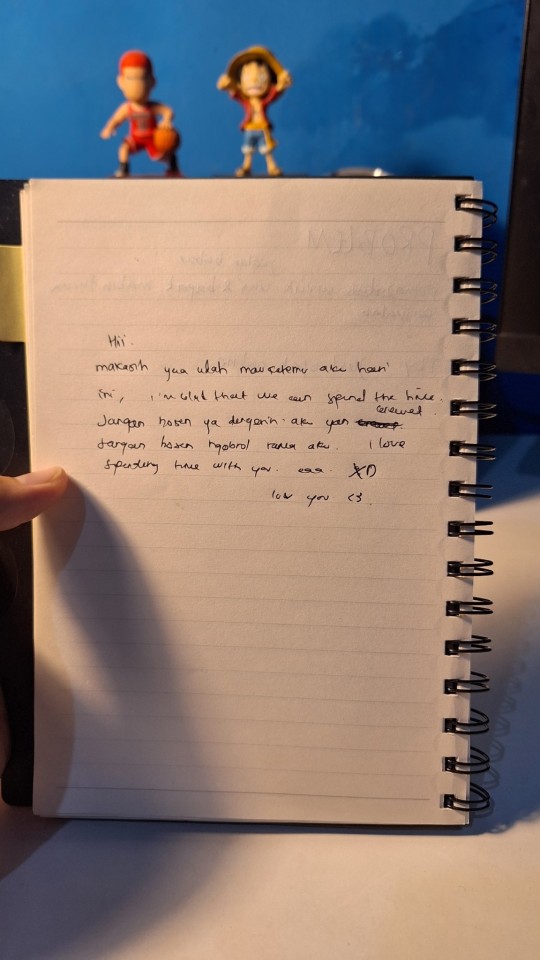 Hii.
makasih yaa udah mau ketemu aku hari
ini, i'm glad that we can spend the time.
Jangan bosen ya dengerin aku yan cerewet
Jangan bosen ngobrol sama aku. i love
spending time with you. XD
lov you <3
PROBLEM